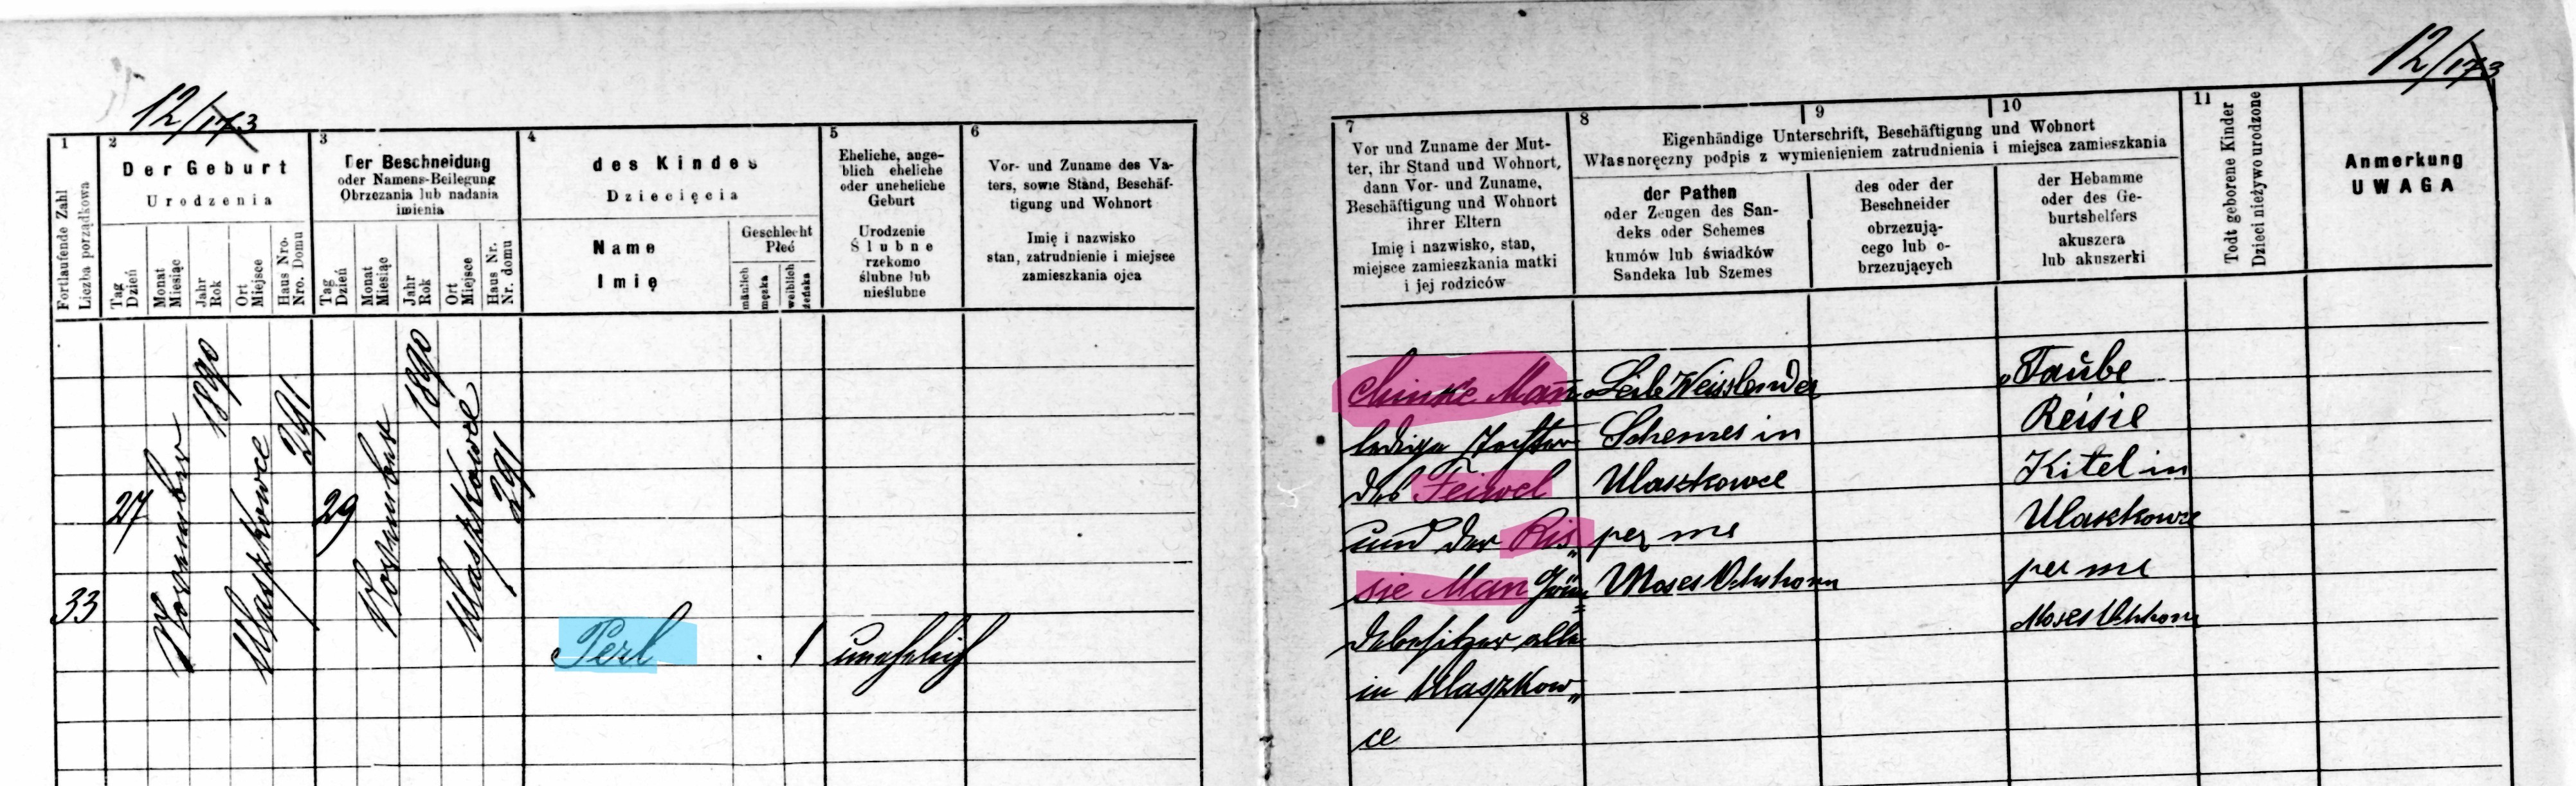 12/173
12/173
1
2
3
4
5
6
7
8
9
10
11
Fortlaufende Zahl
Liczba porządkowa
Der Geburt
Urodzenia
Tag
Dzień
Monat
Miesiąc
Jahr
Rok
Ort
Miejsce
Haus Nro.
Nro. Domu
Der Beschneidung
oder Namens-Beilegung
Obrzezania lub nadania
imienia
Tag
Dzień
Monat
Miesiąc
Jahr
Rok
Ort
Miejsce
Haus Nr.
Nr. domu
des Kindes
Dziecięcia
Name
Imię
Geschlecht
Płeć
mänlich
męzka
weiblich
żeńska
Eheliche, ange-
blich eheliche
oder uneheliche
Geburt
Urodzenie
Ślubne
rzekomo
ślubne lub
nieślubne
Vor- und Zuname des Va-
ters, sowie Stand, Beschäf-
tigung und Wohnort
Imię i nazwisko
stan, zatrudnienie i miejsce
zamieszkania ojca
Vor und Zuname der Mut-
ter, ihr Stand und Wohnort,
dann Vor- und Zuname,
Beschäftigung und Wohnort
ihrer Eltern
Imię i nazwisko, stan,
miejsce zamieszkania matki
i jej rodziców
Eigenhändige Unterschrift, Beschäftigung und Wohnort
Własnoręczny podpis z wymienieniem zatrudnienia i miejsca zamieszkania
der Pathen
oder Zeugen des San-
deks oder Schemes
kumów lub świadków
Sandeka lub Szemes
des oder der
Beschneider
obrzezują-
cego lub o-
brzezujących
der Hebamme
oder des Ge-
burtshelfers
akuszera
lub akuszerki
Todt geborene Kinder
Dzieci nieżywo urodzone
Anmerkung
UWAGA
33
27
November
1890
Ulaszkowce
291
29
November
1890
Ulaszkowce
291
Perl
. 1
unehelich
Chinke Man
ledige Tochter
des Feiwel
und der Ris„
sie Man Grun=
debesitzer alle
in Ulaszkow„
ce
Leib Weisslender
Schemes in
Ulaszkowce
per me
Moses Ochshorn
Taube
Reisie
Kitel in
Ulaszkowce
per me
Moses Ochshorn